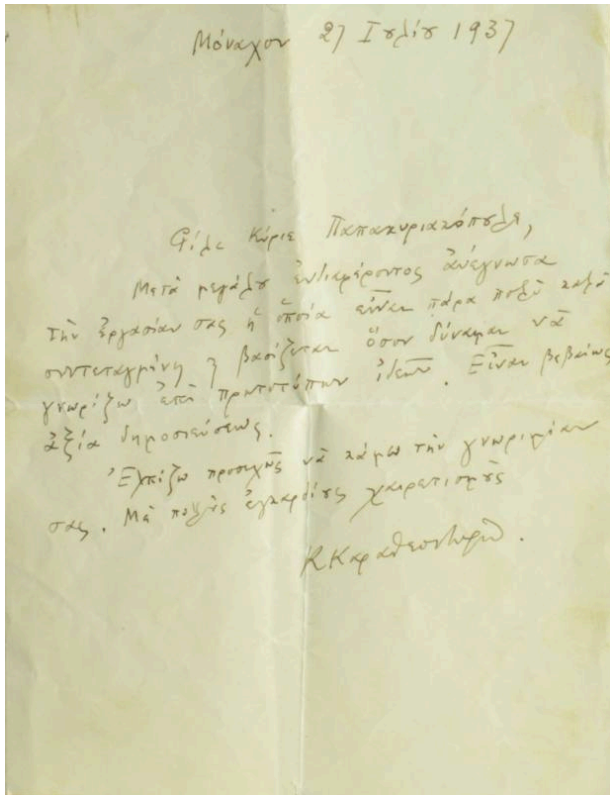 Μόναχον 27 Ιουλίου 1937
Φίλε Κύριε Παπακυριακόπουλε,
Μετὰ μεγάλου ἐνδιαφέροντος ἀνέγνωσα
τὴν ἐργασίαν σας ἡ ὁποία εἶναι πάρα πολὺ καλὰ
συντεταγμένη ἢ βασίζεται ὅσον δύναμαι νὰ
γνωρίζω ἐπὶ πρωτοτύπων ἰδεῶν. Εἶναι βεβαίως
ἀξία δημοσιεύσεως.
Ἐλπίζω προσεχῶς νὰ κάμω τὴν γνωριμίαν
σας. Μὲ πολλοὺς ἐγκαρδίους χαιρετισμοὺς
Κ Καραθεοδωρῆ.